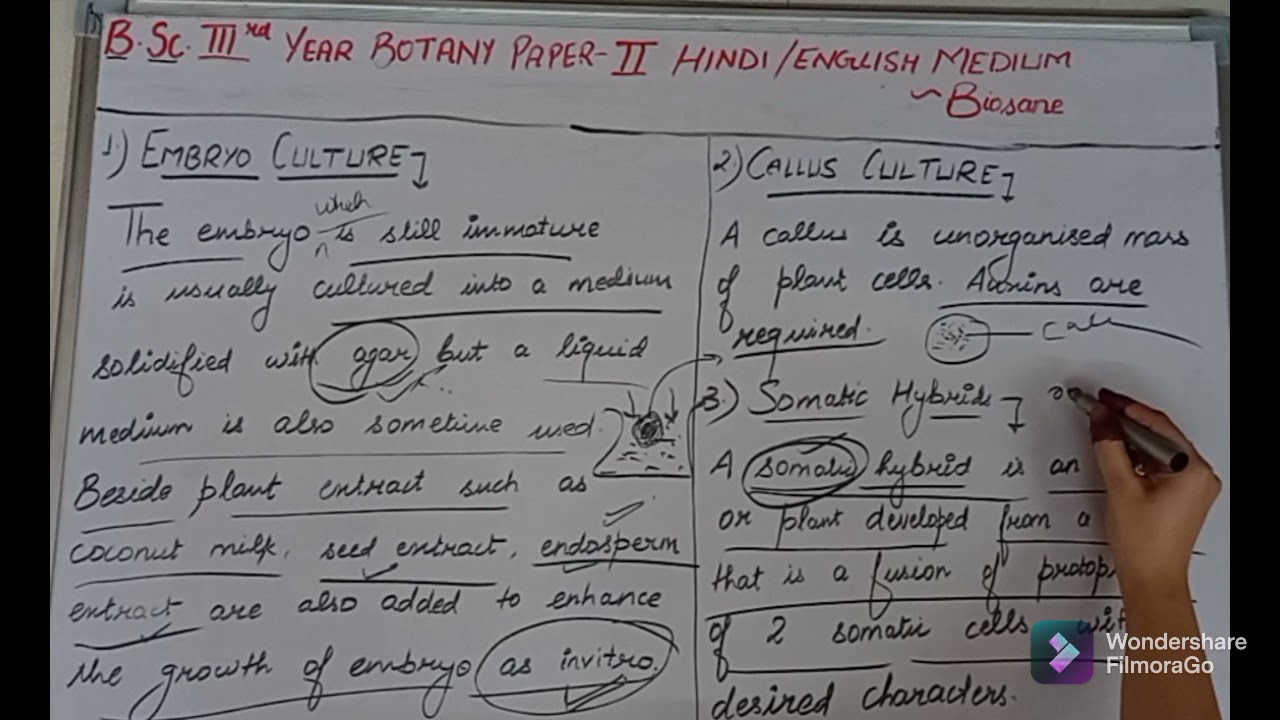 B.Sc. IIIrd YEAR BOTANY PAPER-II HINDI/ENGLISH MEDIUM
~Biosane
1) EMBRYO CULTURE
The embryo which is still immature
is usually cultured into a medium
solidified with agar but a liquid
medium is also sometime used.
Beside plant extract such as
coconut milk, seed extract, endosperm
extract are also added to enhance
the growth of embryo as invitro.
2) CALLUS CULTURE
A callus is unorganised mass
of plant cells. Auxins are
required.
3.) Somatic Hybrids
A somatic hybrid is an
or plant developed from a
that is a fusion of
of 2 somatic cells
desired characters.
Wondershare
FilmoraGo